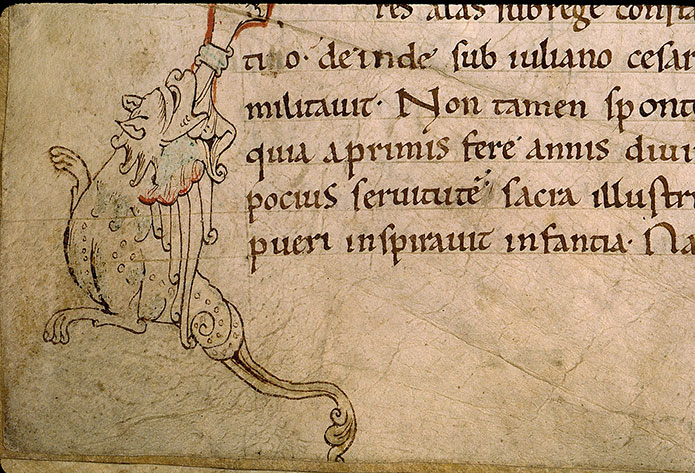 res alas sub rege consta
ti o· deinde sub iuliano cesar
militauit· Non tamen spont
quia aprimis fere annis diui
pocius seruitutē sacra illustri
pueri inspirauit infantia· Na